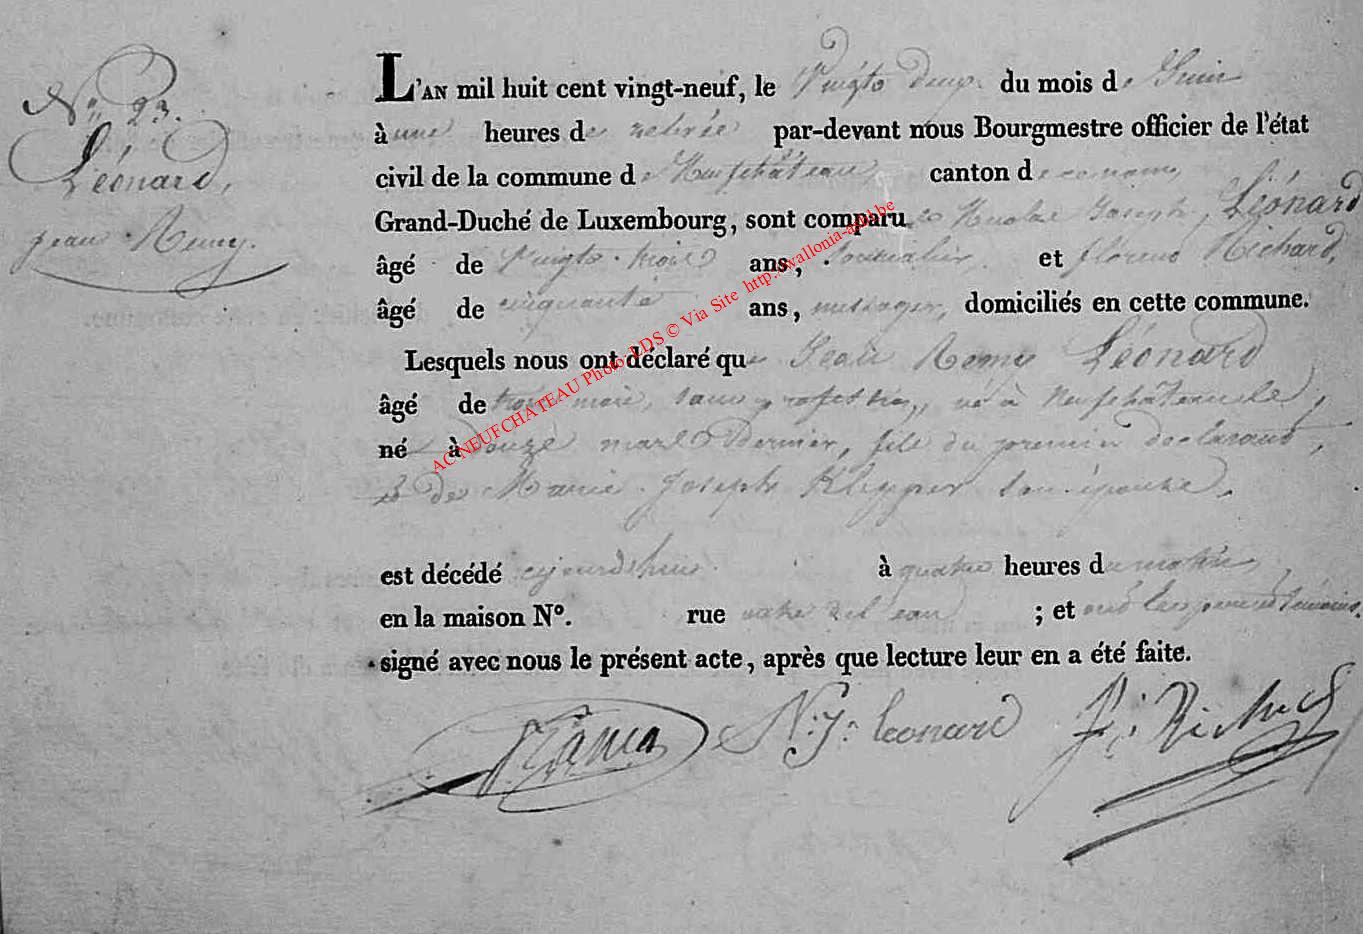 N° 23.
Léonard,
Jean Remy.
L'AN mil huit cent vingt-neuf, le Vingt deux du mois de Juin
à une heures de relevée par-devant nous Bourgmestre officier de l'état
civil de la commune de Neufchâteau, canton de ce nom,
Grand-Duché de Luxembourg, sont comparu Nicolas Joseph Léonard
âgé de Vingt-trois ans, et Richard,
âgé de cinquante ans, messager, domiciliés en cette commune.
Lesquels nous ont déclaré que Jean Remy Léonard
âgé de trois mois, sans profession, né à Neufchâteau le,
né à douze mars dernier, fils du premier declarant,
& de Marie Joseph son épouse.
est décédé ajourd'hui à quatre heures du matin,
en la maison N°. rue ; et ont les témoins,
signé avec nous le présent acte, après que lecture leur en a été faite.
N. J. leonard
AC NEUFCHATEAU Photo LDS © Via Site http://wallonia-asbl.be